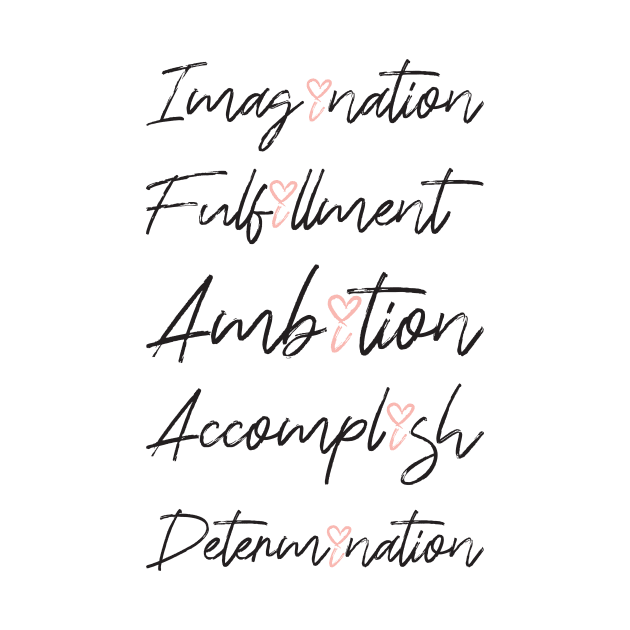 Imagination
Fulfillment
Ambition
Accomplish
Determination